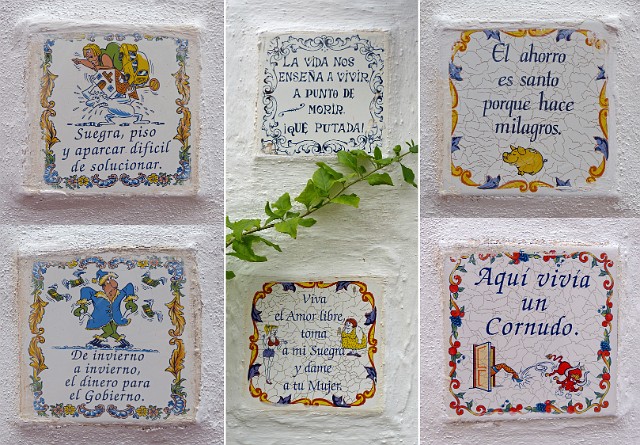 Suegra, piso
y aparcar difícil
de solucionar.
De invierno
a invierno,
el dinero para
el Gobierno.
LA VIDA NOS
ENSEÑA A VIVIR
A PUNTO DE
MORIR.
¡QUE PUTADA!
Viva
el Amor libre,
toma
a mi Suegra
y dame
a tu Mujer.
El ahorro
es santo
porque hace
milagros.
Aquí vivía
un
Cornudo.